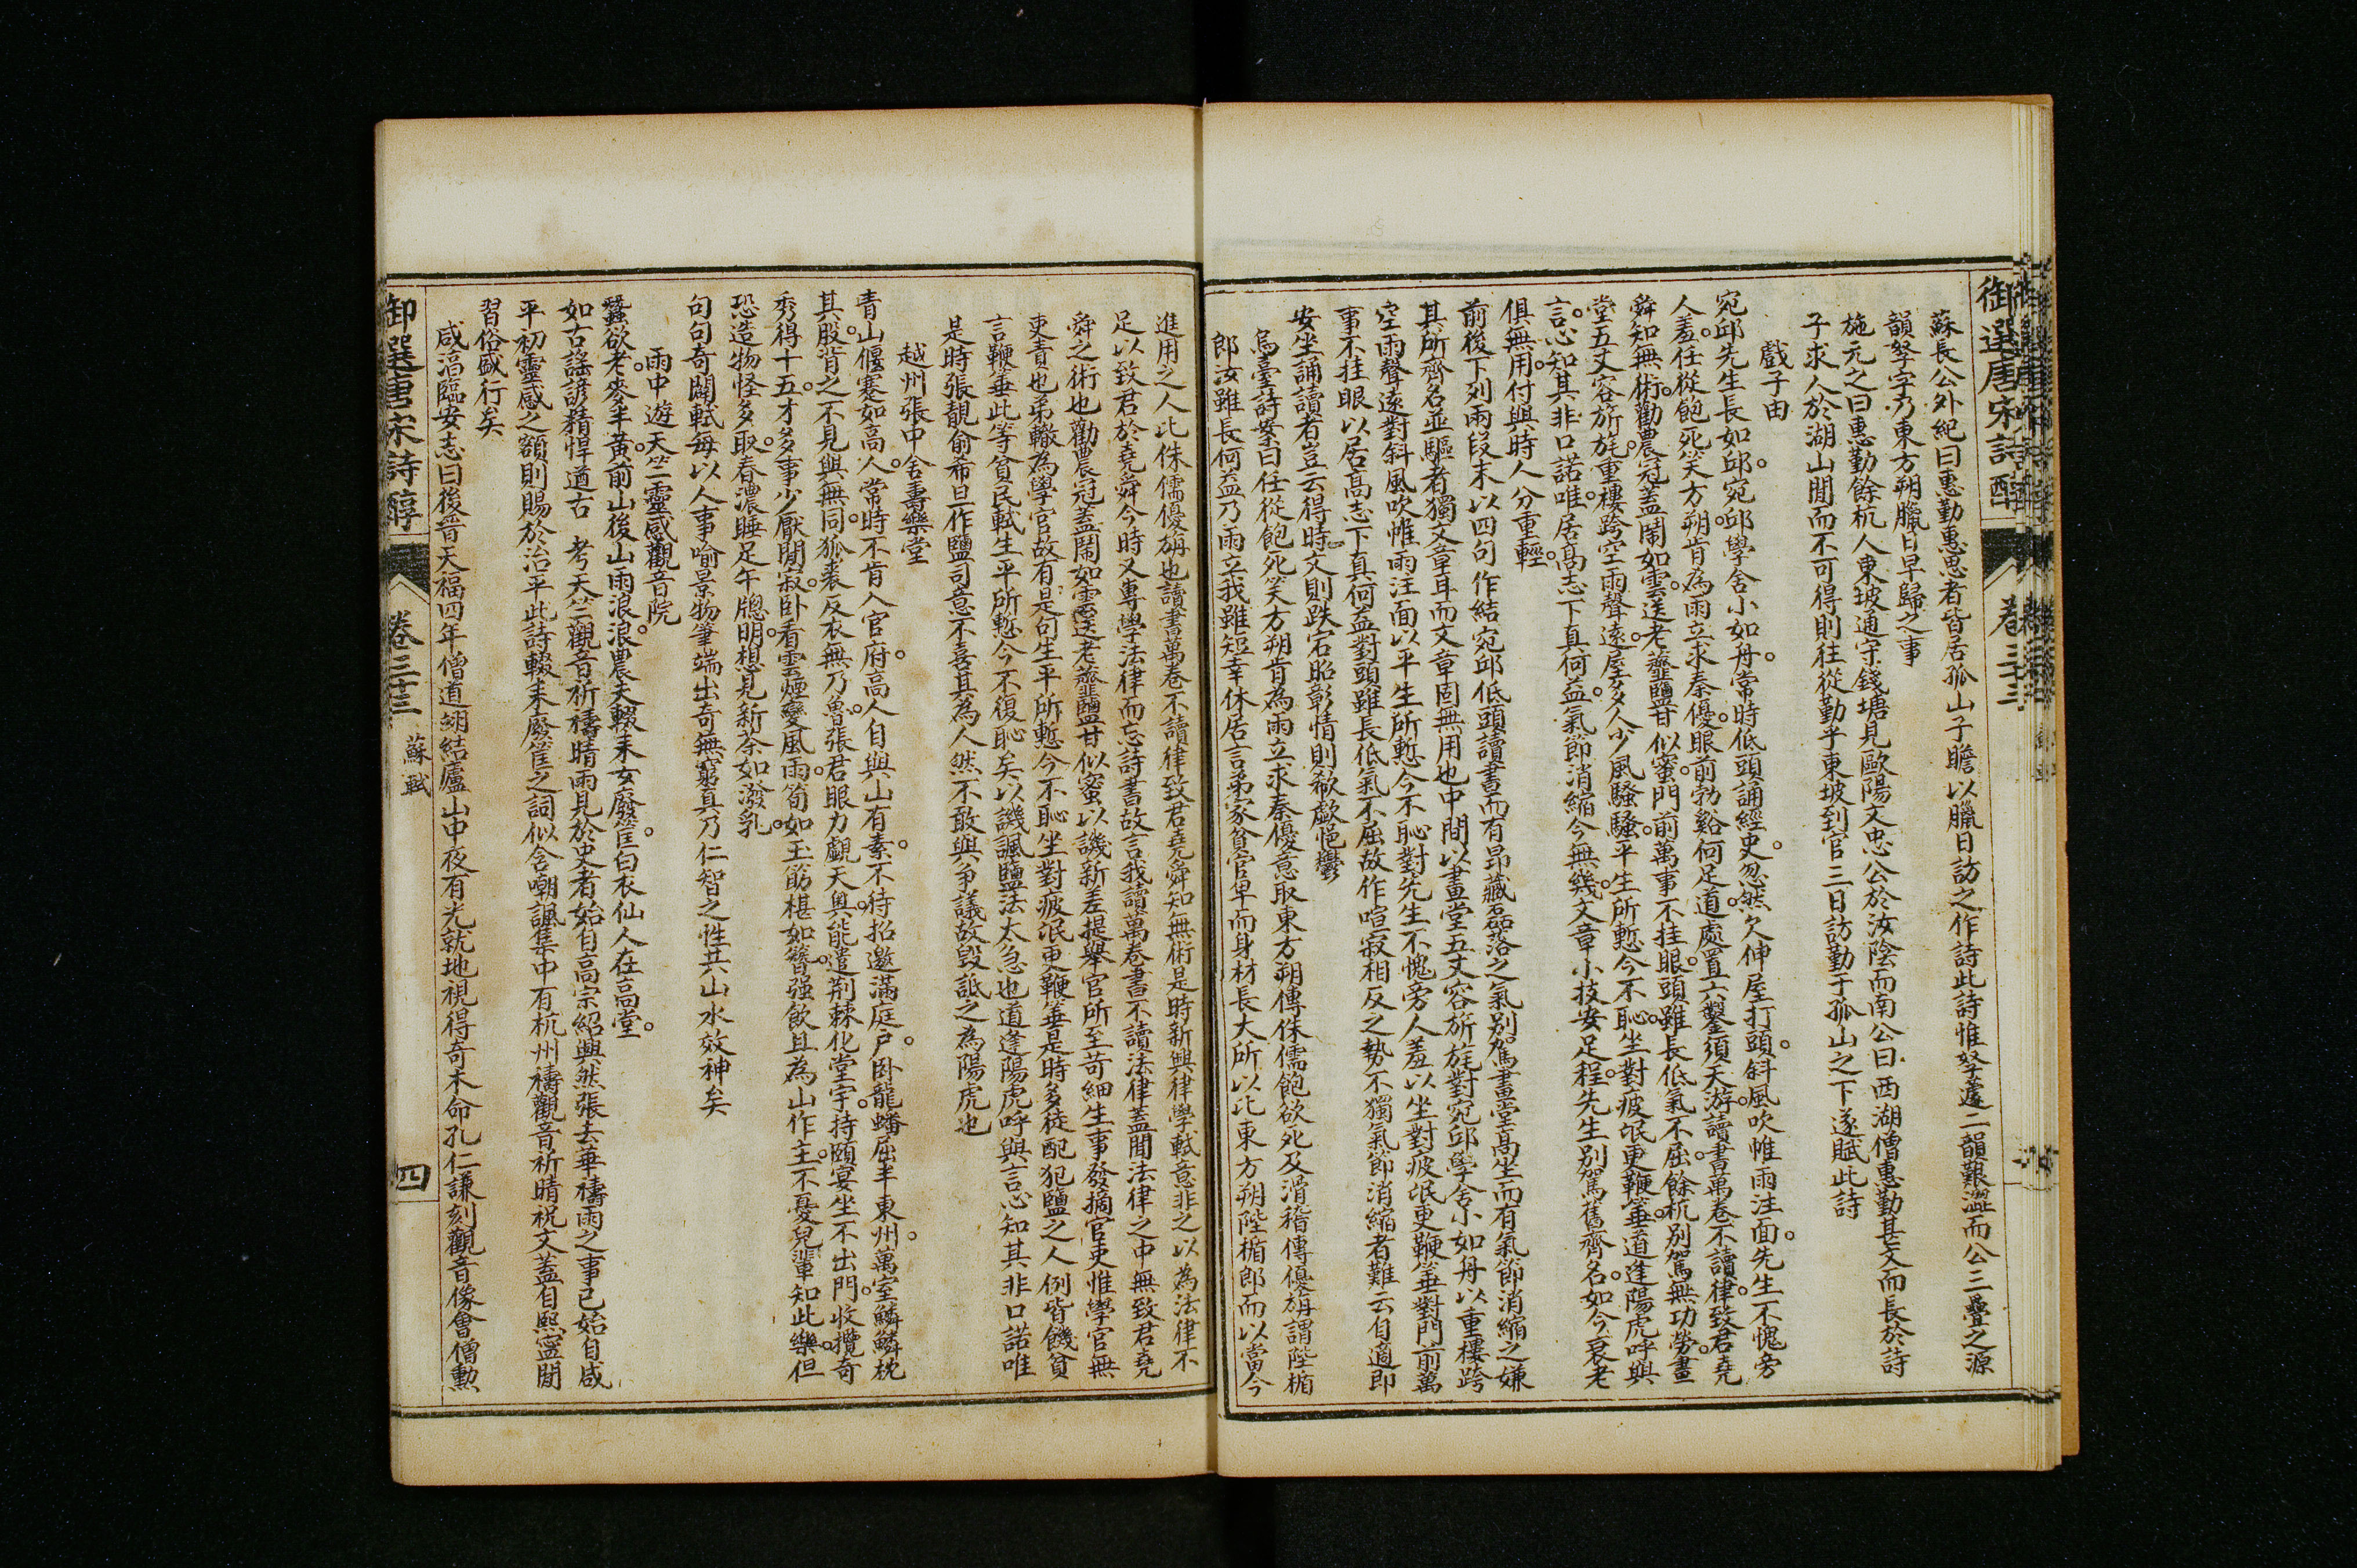 御選唐宋詩醇
卷三十三
蘇長公外紀曰惠勤惠思者皆居孤山子瞻以臘日訪之作詩此詩惟孥蘧二韻艱澀而公三疊之源
韻孥字乃東方朔臘日早歸之事
施元之曰惠勤餘杭人東坡通守錢塘見歐陽文忠公於汝陰而南公曰西湖僧惠勤甚文而長於詩
子求人於湖山閒而不可得則往從勤乎東坡到官三日訪勤于孤山之下遂賦此詩
戲子由
宛邱先生長如邱宛邱學舍小如舟常時低頭誦經史忽然欠伸屋打頭斜風吹帷雨注面先生不愧旁
人羞任從飽死笑方朔肯為雨立求秦優眼前勃谿何足道處置六鑿須天游讀書萬卷不讀律致君堯
舜知無術勸農冠蓋鬧如雲送老虀鹽甘似蜜門前萬事不挂眼頭雖長低氣不屈餘杭別駕無功勞畫
堂五丈容旂旄重樓跨空雨聲遠屋多人少風騷騷平生所慙今不恥坐對疲氓更鞭箠道逢陽虎呼與
言心知其非口諾唯居高志下真何益氣節消縮今無幾文章小技安足程先生別駕舊齊名如今衰老
俱無用付與時人分重輕
前後下列兩段末以四句作結宛邱低頭讀書而有昂藏磊落之氣別駕畫堂高坐而有氣節消縮之嫌
其所齊名並驅者獨文章耳而文章固無用也中間以畫堂五丈容旂旄對宛邱學舍小如舟以重樓跨
空雨聲遠對斜風吹帷雨注面以平生所慙今不恥對先生不愧旁人羞以坐對疲氓更鞭箠對門前萬
事不挂眼以居高志下真何益對頭雖長低氣不屈故作喧寂相反之勢不獨氣節消縮者難云自適即
安坐誦讀者豈云得時文則跌宕昭彰情則欷歔悒鬱
烏臺詩案曰任從飽死笑方朔肯為雨立求秦優意取東方朔傳侏儒飽欲死及滑稽傳優旃謂陛楯
郎汝雖長何益乃雨立我雖短幸休居言弟家貧官卑而身材長大所以比東方朔陛楯郎而以當今
進用之人比侏儒優旃也讀書萬卷不讀律致君堯舜知無術是時新興律學軾意非之以為法律不
足以致君於堯舜今時又專學法律而忘詩書故言我讀萬卷書不讀法律蓋聞法律之中無致君堯
舜之術也勸農冠蓋鬧如雲送老虀鹽甘似蜜以譏新差提舉官所至苛細生事發摘官吏惟學官無
吏責也弟轍為學官故有是句生平所慙今不恥坐對疲氓更鞭箠是時多徒配犯鹽之人例皆饑貧
言鞭箠此等貧民軾生平所慙今不復恥矣以譏諷鹽法太急也道逢陽虎呼與言心知其非口諾唯
是時張靚俞希旦作鹽司意不喜其為人然不敢與爭議故毀詆之為陽虎也
越州張中舍壽樂堂
青山偃蹇如高人常時不肯入官府高人自與山有素不待招邀滿庭戶卧龍蟠屈半東州萬室鱗鱗枕
其股背之不見與無同狐裘反衣無乃魯張君眼力覷天奥能遣荊棘化堂宇持頤宴坐不出門收攬奇
秀得十五才多事少厭閒寂卧看雲煙變風雨筍如玉筯椹如簪强飲且為山作主不憂兒輩知此樂但
恐造物怪多取春濃睡足午牕明想見新茶如潑乳
句句奇闢軾每以人事喻景物筆端出奇無窮真乃仁智之性共山水效神矣
雨中遊天竺靈感觀音院
蠶欲老麥半黄前山後山雨浪浪農夫輟耒女廢筐白衣仙人在高堂
如古謠諺精悍遒古　考天竺觀音祈禱晴雨見於史者始自高宗紹興然張去華禱雨之事已始自咸
平初靈感之額則賜於治平此詩輟耒廢筐之詞似含嘲諷集中有杭州禱觀音祈晴祝文蓋自熙寧閒
習俗盛行矣
咸淳臨安志曰後晉天福四年僧道翊結廬山中夜有光就地視得奇木命孔仁謙刻觀音像會僧勲
御選唐宋詩醇
卷三十三
蘇軾
四